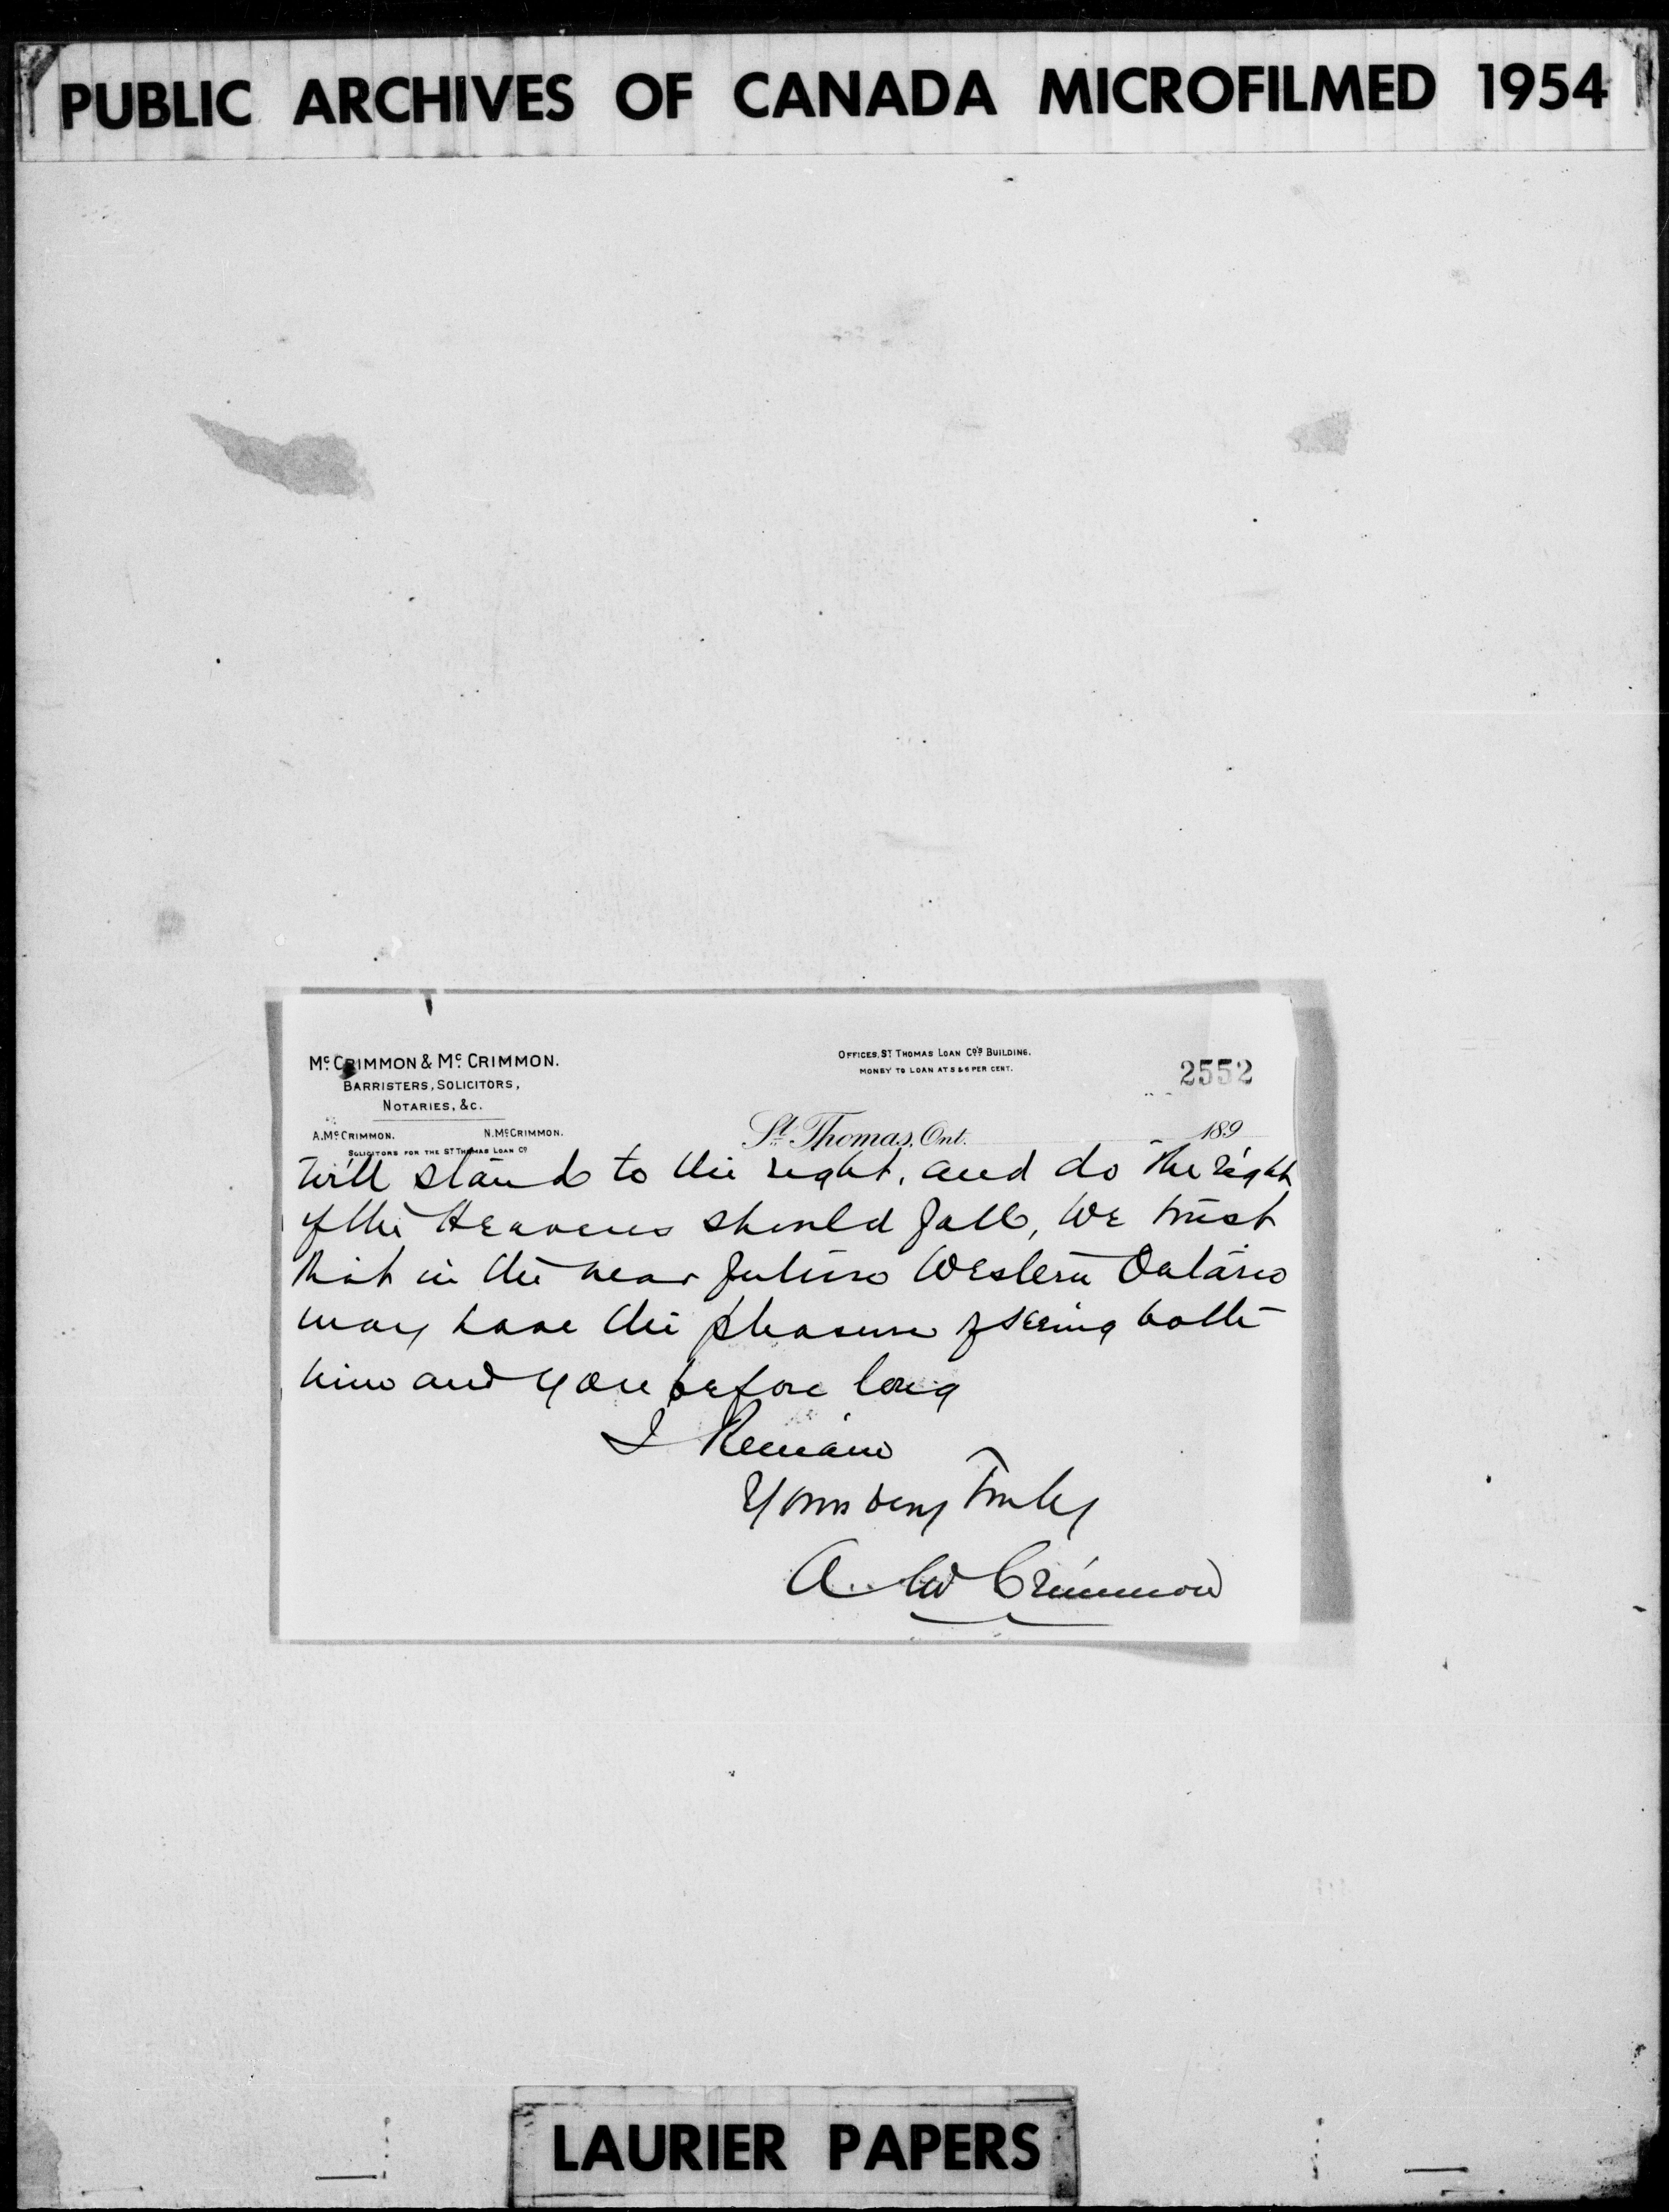 PUBLIC ARCHIVES OF CANADA MICROFILMED 1954
Mc. CRIMMON & Mc. CRIMMON.
BARRISTERS, SOLICITORS,
NOTARIES, &C.
A. McCRIMMON. N. McCRIMMON.
SOLICITORS FOR THE ST THOMAS LOAN CO
OFFICES, ST. THOMAS LOAN CO'S BUILDING.
MONEY TO LOAN AT 5 & 6 PER CENT.
2552
St. Thomas, Ont. 189
will stand to the right, and do the right
if the Heavens should fall, We trust
that in the near future Western Ontario
may have the pleasure of seeing both
him and you before long
I Remain
Yours very Truly
A. McCrimmon
LAURIER PAPERS